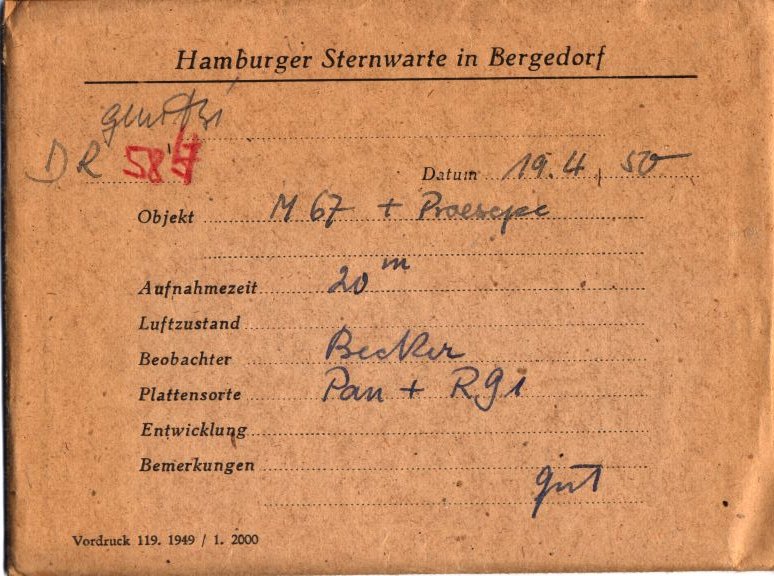 Hamburger Sternwarte in Bergedorf
DR
Datum 19.4.50
Objekt M 67 + Praesepe
Aufnahmezeit 20 m
Luftzustand
Beobachter Becker
Plattensorte Pan + Rg1
Entwicklung
Bemerkungen
gut
Vordruck 119. 1949 / 1. 2000